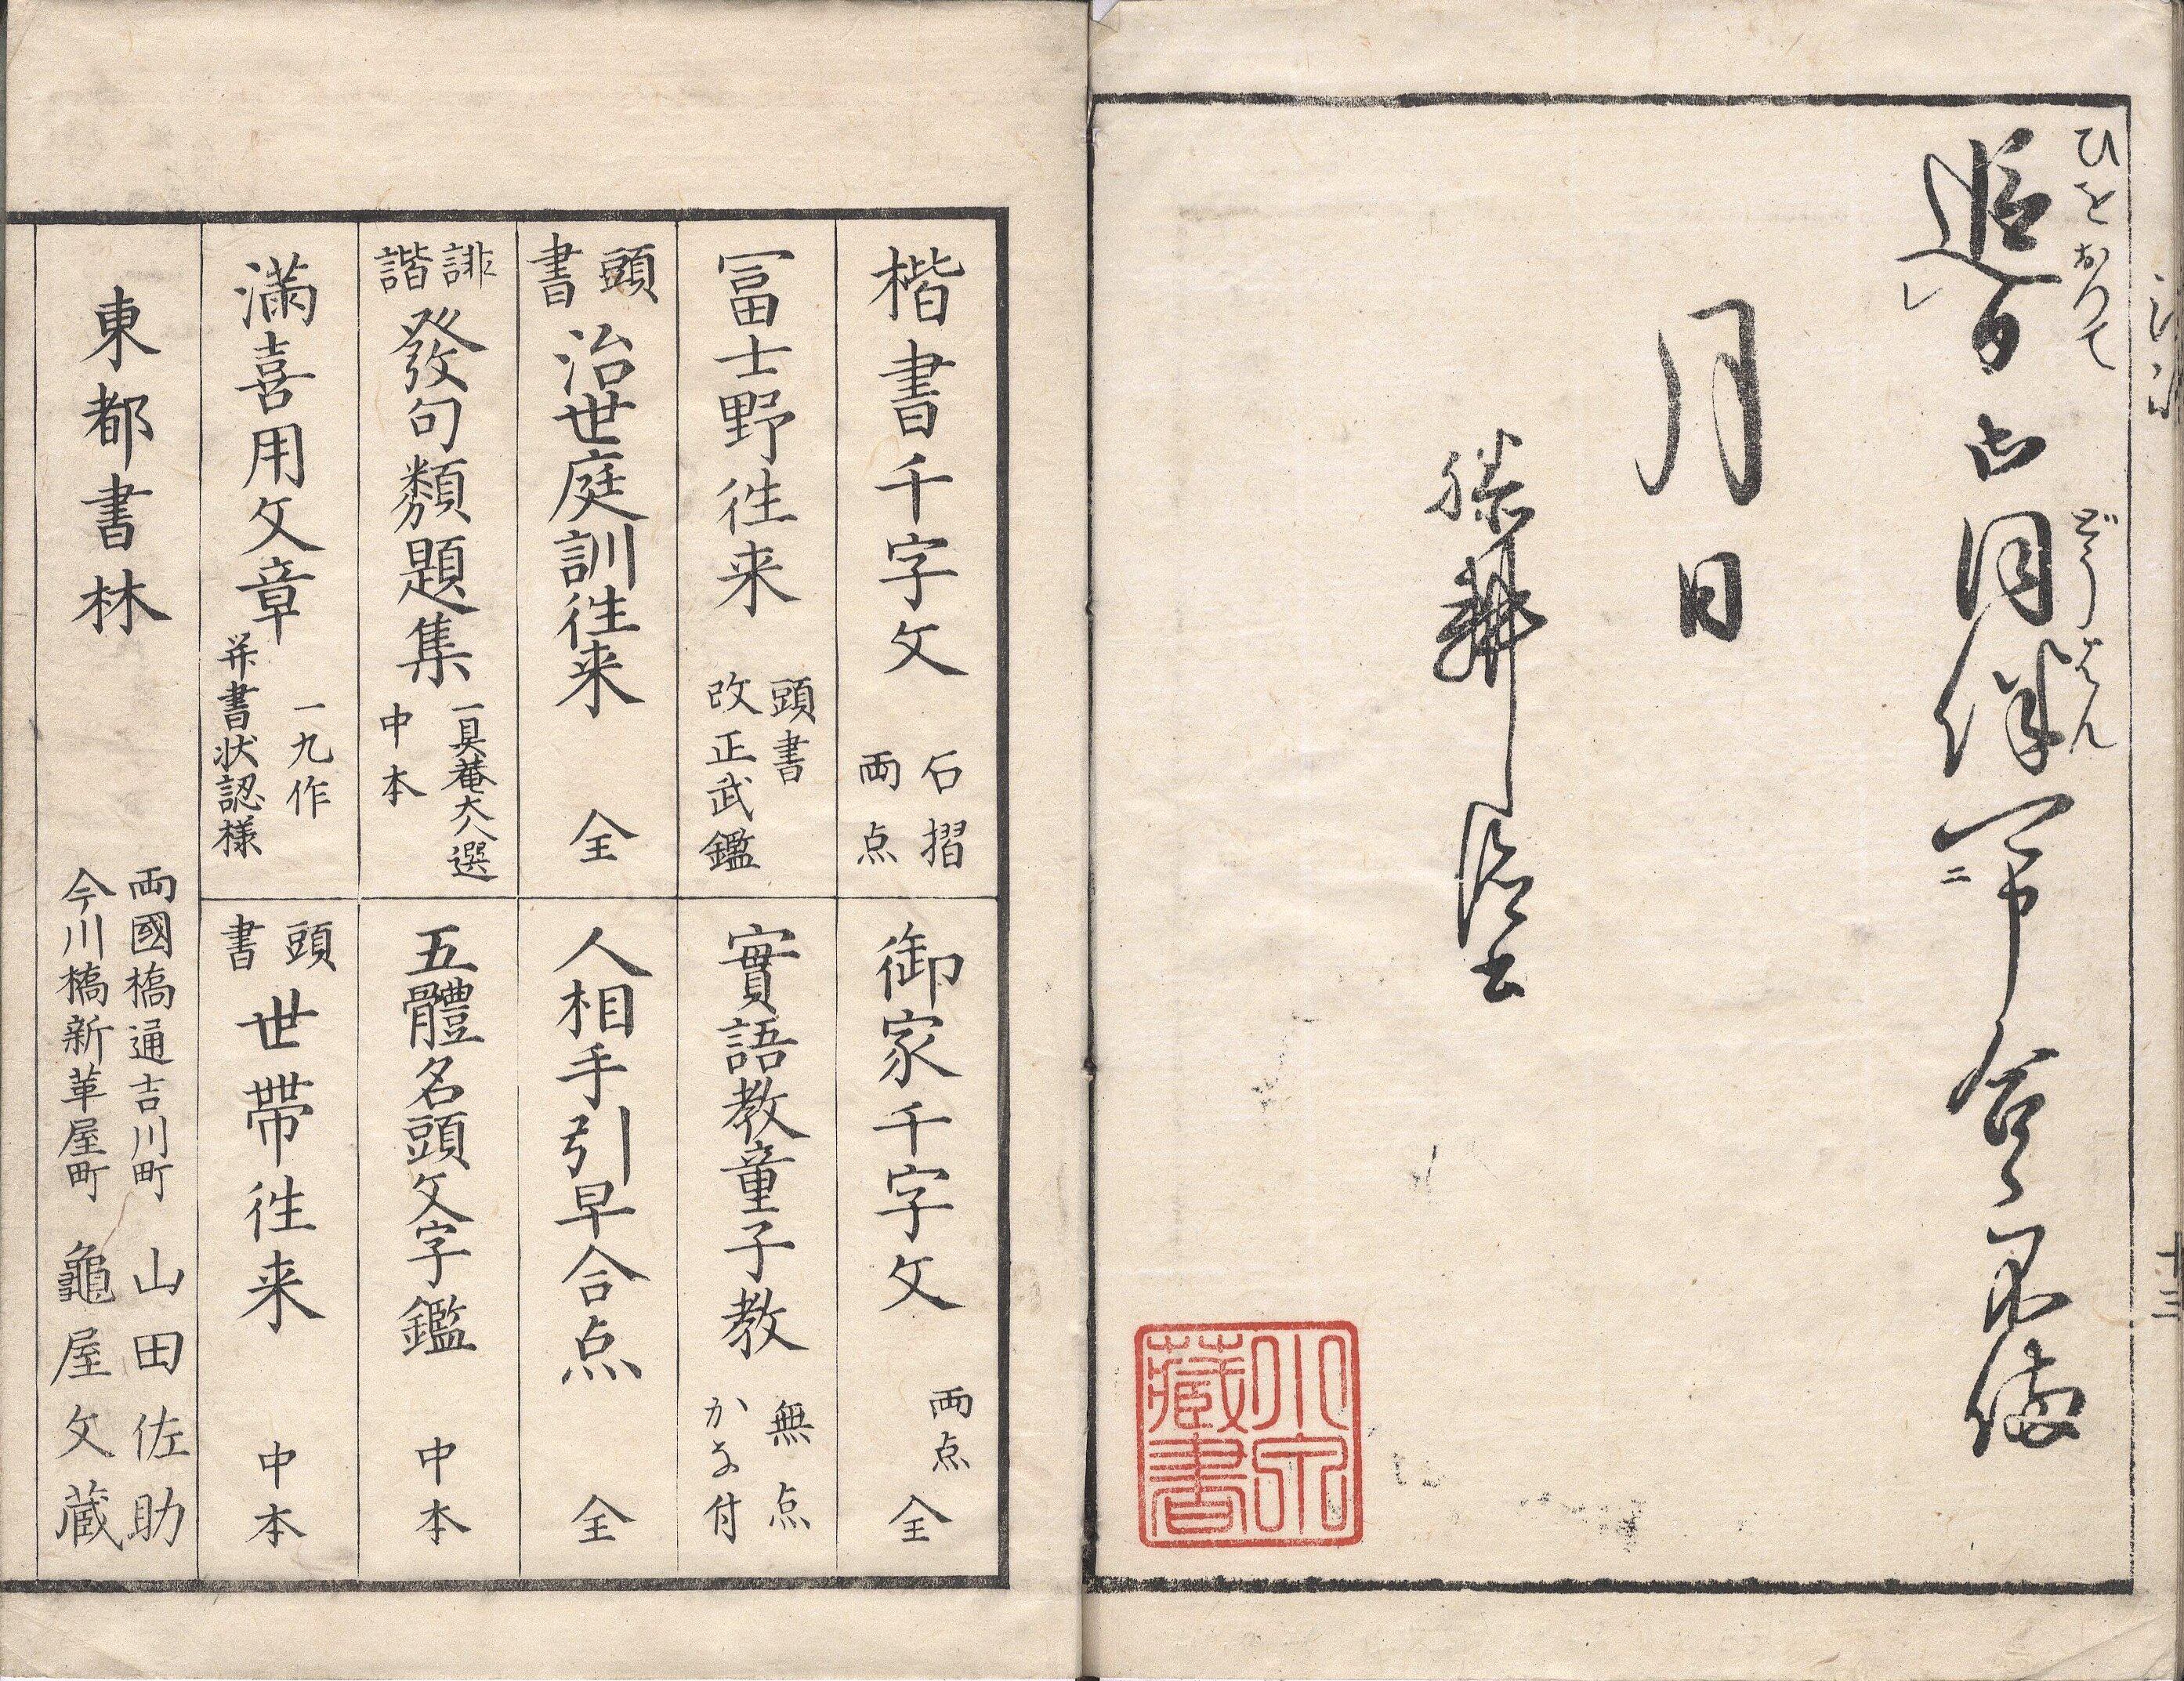 ひをおつて
どうはん
追日
同伴
月日
藏書
十三
楷書千字文 石摺 両点
冨士野徃来 頭書 改正武鑑
頭書 治世庭訓徃来 全
誹諧 發句類題集 一具菴大人選 中本
満喜用文章 一九作 并書状認様
御家千字文 両点 全
實語教童子教 無点 かな付
人相手引早合点 全
五體名頭文字鑑 中本
頭書 世帯徃来 中本
東都書林
両國橋通吉川町 山田佐助
今川橋新革屋町 龜屋文蔵